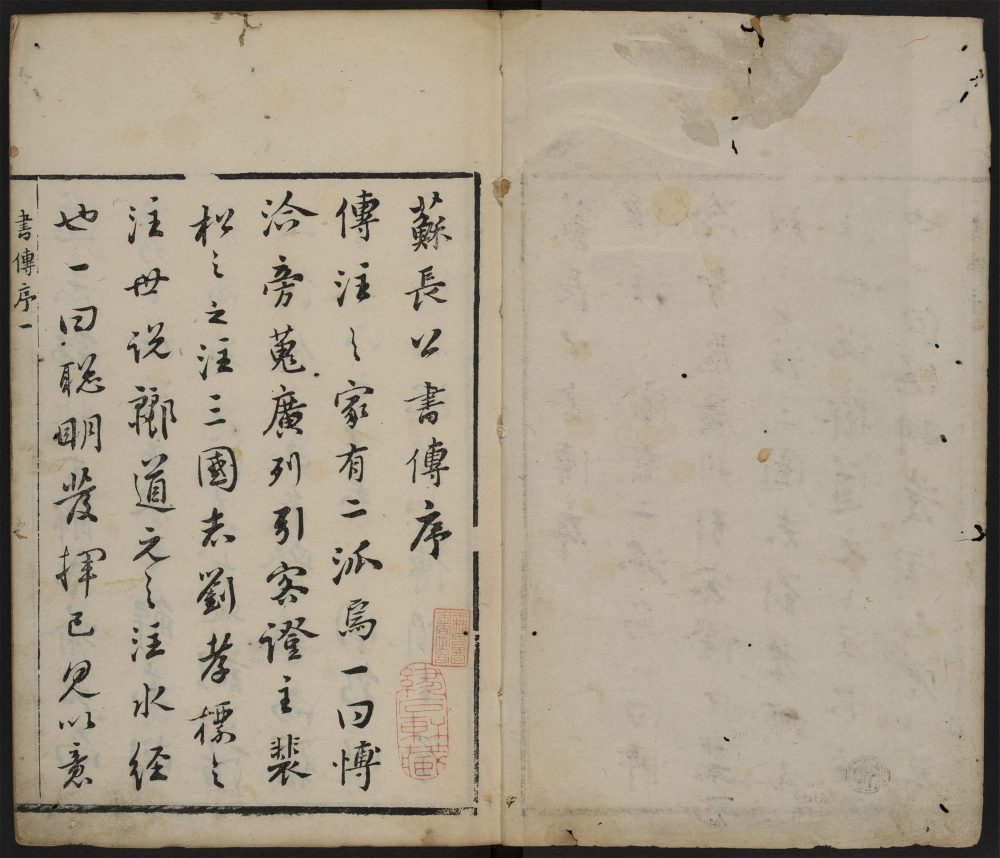 蘇長公書傳序
傳注之家有二派焉一曰博
洽旁蒐廣列引客證主裴
松之之注三國志劉孝標之
注世说酈道元之注水经
也一曰聪明發揮己見以意
書傳序一